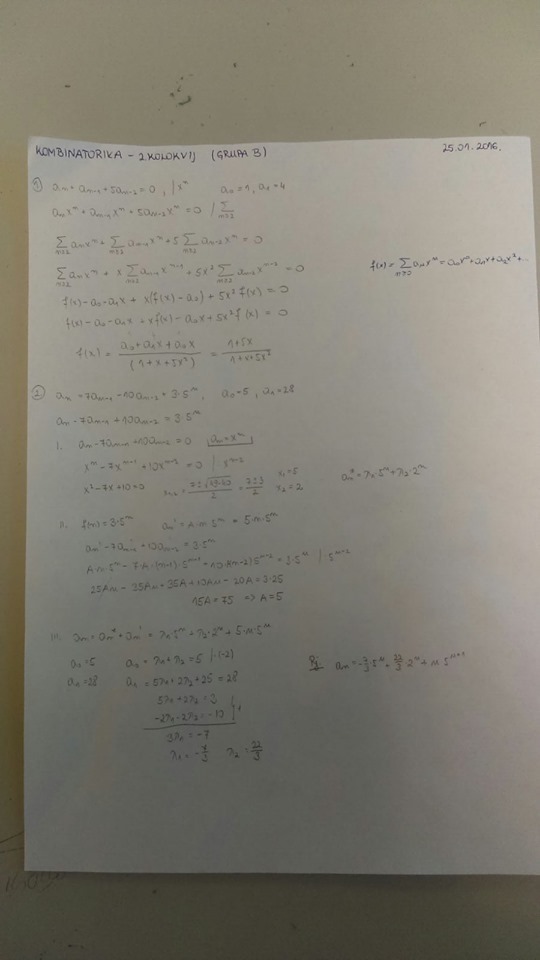 KOMBINATORIKA - 2. KOLOKVIJ (GRUPA B) 25.01.2016.
① aₙ + aₙ₋₁ + 5aₙ₋₂ = 0, /xⁿ a₀=1, a₁=4
aₙxⁿ + aₙ₋₁xⁿ + 5aₙ₋₂xⁿ = 0 / Σ n≥2
Σ n≥2 aₙxⁿ + Σ n≥2 aₙ₋₁xⁿ + 5 Σ n≥2 aₙ₋₂xⁿ = 0
Σ n≥2 aₙxⁿ + x Σ n≥2 aₙ₋₁xⁿ⁻¹ + 5x² Σ n≥2 aₙ₋₂xⁿ⁻² = 0 f(x) = Σ n≥0 aₙxⁿ = a₀x⁰ + a₁x + a₂x² + ...
f(x) - a₀ - a₁x + x(f(x) - a₀) + 5x² f(x) = 0
f(x) - a₀ - a₁x + xf(x) - a₀x + 5x² f(x) = 0
f(x) = (a₀ + a₁x + a₀x)/(1+x+5x²) = (1+5x)/(1+x+5x²)
② aₙ = 7aₙ₋₁ - 10aₙ₋₂ + 3·5ⁿ, a₀=5, a₁=28
aₙ - 7aₙ₋₁ + 10aₙ₋₂ = 3·5ⁿ
I. aₙ - 7aₙ₋₁ + 10aₙ₋₂ = 0 aₙ = xⁿ
xⁿ - 7xⁿ⁻¹ + 10xⁿ⁻² = 0 /: xⁿ⁻²
x² - 7x + 10 = 0 x₁,₂ = (7±√(49-40))/2 = (7±3)/2 x₁=5 x₂=2 aₙ* = λ₁·5ⁿ + λ₂·2ⁿ
II. f(n) = 3·5ⁿ aₙ' = A·n·5ⁿ = 5·n·5ⁿ
aₙ' - 7aₙ₋₁' + 10aₙ₋₂' = 3·5ⁿ
A·n·5ⁿ - 7·A·(n-1)·5ⁿ⁻¹ + 10A(n-2)5ⁿ⁻² = 3·5ⁿ /:5ⁿ⁻²
25An - 35An + 35A + 10An - 20A = 3·25
15A = 75 => A = 5
III. aₙ = aₙ* + aₙ' = λ₁·5ⁿ + λ₂·2ⁿ + 5·n·5ⁿ
a₀ = 5 a₀ = λ₁ + λ₂ = 5 /·(-2) Rj. aₙ = -7/3·5ⁿ + 22/3·2ⁿ + n·5ⁿ⁺¹
a₁ = 28 a₁ = 5λ₁ + 2λ₂ + 25 = 28
5λ₁ + 2λ₂ = 3
-2λ₁ - 2λ₂ = -10 +
3λ₁ = -7
λ₁ = -7/3 λ₂ = 22/3